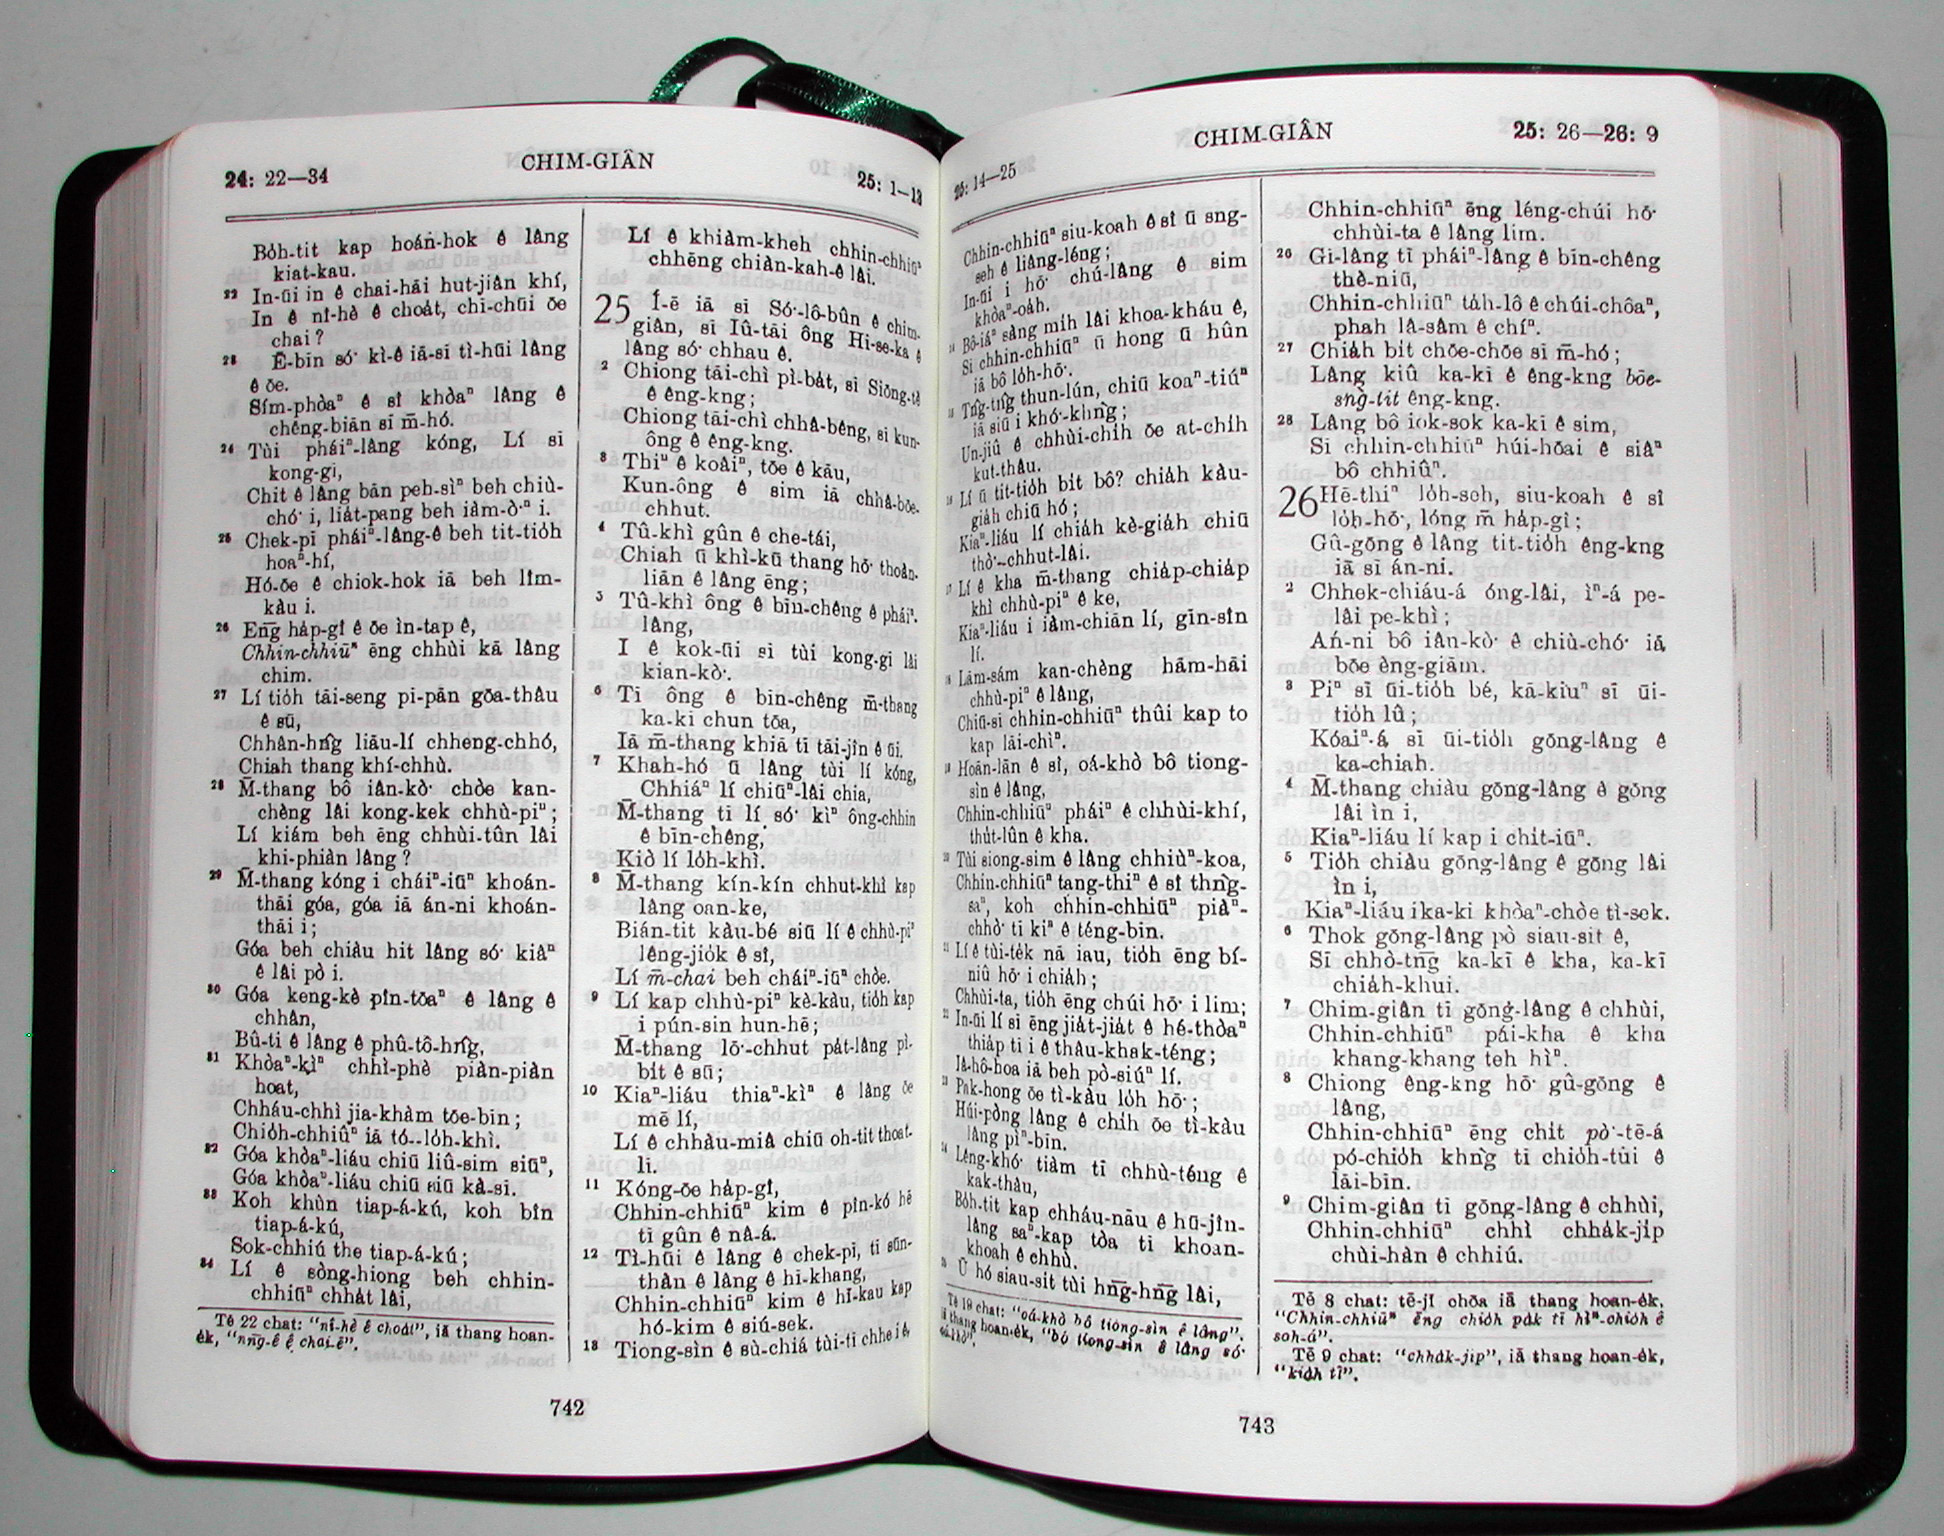 24: 22—34
CHIM-GIÂN
25: 1—13
Bo̍h-tit kap hoán-hok ê lâng
kiat-kau.
22 In-ūi in ê chai-hāi hut-jiân khí,
In ê nî-hè ê choa̍t, chī-chūi ōe
chai?
23 Ē-bīn só͘ kì-ê iā-sī tì-hūi lâng
ê ōe.
Sím-phòaⁿ ê sî khòaⁿ lâng ê
chêng-biān sī m̄-hó.
24 Tùi pháiⁿ-lâng kóng, Lí sī
kong-gī,
Chit ê lâng bān peh-sìⁿ beh chiù-
chó͘ i, lia̍t-pang beh iàm-ò͘ⁿ i.
25 Chek-pī pháiⁿ-lâng-ê beh tit-tio̍h
hoaⁿ-hí,
Hó-ōe ê chiok-hok iā beh lîm-
kàu i.
26 Eng ha̍p-gî ê ōe ìn-tap ê,
Chhin-chhiūⁿ ēng chhùi kā lâng
chim.
27 Lí tio̍h tāi-seng pī-pān gōa-thâu
ê sū,
Chhân-hn̂g liāu-lí chheng-chhó,
Chiah thang khí-chhù.
28 M̄-thang bô iân-kò͘ chòe kan-
chèng lâi kong-kek chhù-piⁿ;
Lí kiám beh ēng chhùi-tûn lâi
khi-phiàn lâng?
29 M̄-thang kóng i cháiⁿ-iūⁿ khoán-
thāi góa, góa iā án-ni khoán-
thāi i;
Góa beh chiàu hit lâng só͘ kiâⁿ
ê lâi pò i.
30 Góa keng-kè pîn-tōaⁿ ê lâng ê
chhân,
Bû-tì ê lâng ê phû-tô-hn̂g,
31 Khòaⁿ-kìⁿ chhì-phè piàn-piàn
hoat,
Chháu-chhì jia-khàm tōe-bīn;
Chio̍h-chhiûⁿ iā tó--lo̍h-khì.
32 Góa khòaⁿ-liáu chiū liû-sim siūⁿ,
Góa khòaⁿ-liáu chiū siū kà-sī.
33 Koh khùn tiap-á-kú, koh bîn
tiap-á-kú,
Sok-chhiú the tiap-á-kú;
34 Lí ê sòng-hiong beh chhin-
chhiūⁿ chha̍t lâi,
Tē 22 chat: “nî-hè ê choa̍t”, iā thang hoan-
e̍k, “nn̄g-ê ê chai-ē”.
742
Lí ê khiàm-kheh chhin-chhiūⁿ
chhēng chiàn-kah-ê lâi.
25 Í-ē iā sī Só͘-lô-bûn ê chim-
giân, sī Iû-tāi ông Hi-se-ka ê
lâng só͘ chhau ê.
2 Chiong tāi-chì pì-ba̍t, sī Siōng-tè
ê êng-kng;
Chiong tāi-chì chhâ-bêng, sī kun-
ông ê êng-kng.
3 Thiⁿ ê koâiⁿ, tōe ê kāu,
Kun-ông ê sim iā chhâ-bōe-
chhut.
4 Tû-khì gûn ê che-tái,
Chiah ū khì-kū thang hō͘ thoàn-
liān ê lâng ēng;
5 Tû-khì ông ê bīn-chêng ê pháiⁿ-
lâng,
I ê kok-ūi sī tùi kong-gī lâi
kian-kò͘.
6 Tī ông ê bīn-chêng m̄-thang
ka-kī chun tōa,
Iā m̄-thang khiā tī tāi-jîn ê ūi.
7 Khah-hó ū lâng tùi lí kóng,
Chhiáⁿ lí chiūⁿ-lâi chia,
M̄-thang tī lí só͘ kìⁿ ông-chhin
ê bīn-chêng,
Kiò lí lo̍h-khì.
8 M̄-thang kín-kín chhut-khì kap
lâng oan-ke,
Bián-tit kàu-bé siū lí ê chhù-piⁿ
lêng-jio̍k ê sî,
Lí m̄-chai beh cháiⁿ-iūⁿ chòe.
9 Lí kap chhù-piⁿ kè-kàu, tio̍h kap
i pún-sin hun-hē;
M̄-thang lō͘-chhut pa̍t-lâng pì-
bi̍t ê sū;
10 Kiaⁿ-liáu thiaⁿ-kìⁿ ê lâng ōe
mē lí,
Lí ê chhàu-miâ chiū oh-tit thoat-
lī.
11 Kóng-ōe ha̍p-gî,
Chhin-chhiūⁿ kim ê pîn-kó hē
tī gûn ê nâ-á.
12 Tì-hūi ê lâng ê chek-pī, tī sūn-
thàn ê lâng ê hī-khang,
Chhin-chhiūⁿ kim ê hī-kau kap
hó-kim ê siú-sek.
13 Tiong-sìn ê sù-chiá tùi-tī chhe i ê,
CHIM-GIÂN
25: 14—25
25: 26—26: 9
Chhin-chhiūⁿ siu-koah ê sî ū sng-
seh ê liâng-léng;
In-ūi i hō͘ chú-lâng ê sim
khòaⁿ-oa̍h.
Bô-iáⁿ sàng mih lâi khoa-kháu ê,
Sī chhin-chhiūⁿ ū hong ū hûn
iā bô lo̍h-hō͘.
Tn̂g-tn̂g thun-lún, chiū koaⁿ-tiúⁿ
iā siū i khó͘-khǹg;
Un-jiû ê chhùi-chi̍h ōe at-chi̍h
kut-thâu.
Lí ū tit-tio̍h bi̍t bô? chia̍h kàu-
gia̍h chiū hó;
Kiaⁿ-liáu lí chia̍h kè-gia̍h chiū
thò͘--chhut-lâi.
Lí ê kha m̄-thang chia̍p-chia̍p
khì chhù-piⁿ ê ke,
Kiaⁿ-liáu i iàm-chiān lí, gīn-sīn
lí.
Lām-sám kan-chèng hām-hāi
chhù-piⁿ ê lâng,
Chiū-sī chhin-chhiūⁿ thûi kap to
kap lāi-chìⁿ.
Hoān-lān ê sî, oá-khò bô tiong-
sìn ê lâng,
Chhin-chhiūⁿ pháiⁿ ê chhùi-khí,
thu̍t-lûn ê kha.
Tùi siong-sim ê lâng chhiùⁿ-koa,
Chhin-chhiūⁿ tang-thiⁿ ê sî thǹg-
saⁿ, koh chhin-chhiūⁿ piàⁿ-
chhò͘ tī kiⁿ ê téng-bīn.
Lí ê tùi-te̍k nā iau, tio̍h ēng bí-
niû hō͘ i chia̍h;
Chhùi-ta, tio̍h ēng chúi hō͘ i lim;
In-ūi lí sī ēng jia̍t-jia̍t ê hé-thòaⁿ
thia̍p tī i ê thâu-khak-téng;
Iâ-hô-hoa iā beh pò-siúⁿ lí.
Pak-hong ōe tì-kàu lo̍h hō͘;
Húi-pòng lâng ê chi̍h ōe tì-kàu
lâng pìⁿ-bīn.
Lêng-khó͘ tiàm tī chhù-téng ê
kak-thâu,
Bo̍h-tit kap chháu-nāu ê hū-jîn-
lâng saⁿ-kap tòa tī khoan-
khoah ê chhù.
Ū hó siau-sit tùi hn̄g-hn̄g lâi,
Tē 19 chat: “oá-khò bô tiong-sìn ê lâng”,
iā thang hoan-e̍k, “bô tiong-sìn ê lâng só͘
oá-khò”.
Chhin-chhiūⁿ ēng léng-chúi hō͘
chhùi-ta ê lâng lim.
26 Gī-lâng tī pháiⁿ-lâng ê bīn-chêng
thè-niū,
Chhin-chhiūⁿ ta̍h-lô ê chúi-chôaⁿ,
phah lâ-sâm ê chíⁿ.
27 Chia̍h bi̍t chōe-chōe sī m̄-hó;
Lâng kiû ka-kī ê êng-kng bōe-
sǹg-tit êng-kng.
28 Lâng bô iok-sok ka-kī ê sim,
Sī chhin-chhiūⁿ húi-hōai ê siâⁿ
bô chhiûⁿ.
26 Hē-thiⁿ lo̍h-seh, siu-koah ê sî
lo̍h-hō͘, lóng m̄ ha̍p-gî;
Gû-gōng ê lâng tit-tio̍h êng-kng
iā sī án-ni.
2 Chhek-chiáu-á óng-lâi, ìⁿ-á pe-
lâi pe-khì;
Án-ni bô iân-kò͘ ê chiù-chó͘ iā
bōe èng-giām.
3 Piⁿ sī ūi-tio̍h bé, kā-kiuⁿ sī ūi-
tio̍h lû;
Kóaiⁿ-á sī ūi-tio̍h gōng-lâng ê
ka-chiah.
4 M̄-thang chiàu gōng-lâng ê gōng
lâi ìn i,
Kiaⁿ-liáu lí kap i chi̍t-iūⁿ.
5 Tio̍h chiàu gōng-lâng ê gōng lâi
ìn i,
Kiaⁿ-liáu i ka-kī khòaⁿ-chòe tì-sek.
6 Thok gōng-lâng pò siau-sit ê,
Sī chhò-tn̄g ka-kī ê kha, ka-kī
chia̍h-khui.
7 Chim-giân tī gōng-lâng ê chhùi,
Chhin-chhiūⁿ pái-kha ê kha
khang-khang teh hìⁿ.
8 Chiong êng-kng hō͘ gû-gōng ê
lâng,
Chhin-chhiūⁿ ēng chi̍t pò͘-tē-á
pó-chio̍h khǹg tī chio̍h-tùi ê
lāi-bīn.
9 Chim-giân tī gōng-lâng ê chhùi,
Chhin-chhiūⁿ chhì chha̍k-ji̍p
chùi-hàn ê chhiú.
Tē 8 chat: tē-jī chōa iā thang hoan-e̍k,
“Chhin-chhiūⁿ ēng chio̍h pa̍k tī hìⁿ-chio̍h ê
soh-á”.
Tē 9 chat: “chha̍k-ji̍p”, iā thang hoan-e̍k,
“kia̍h tī”.
743